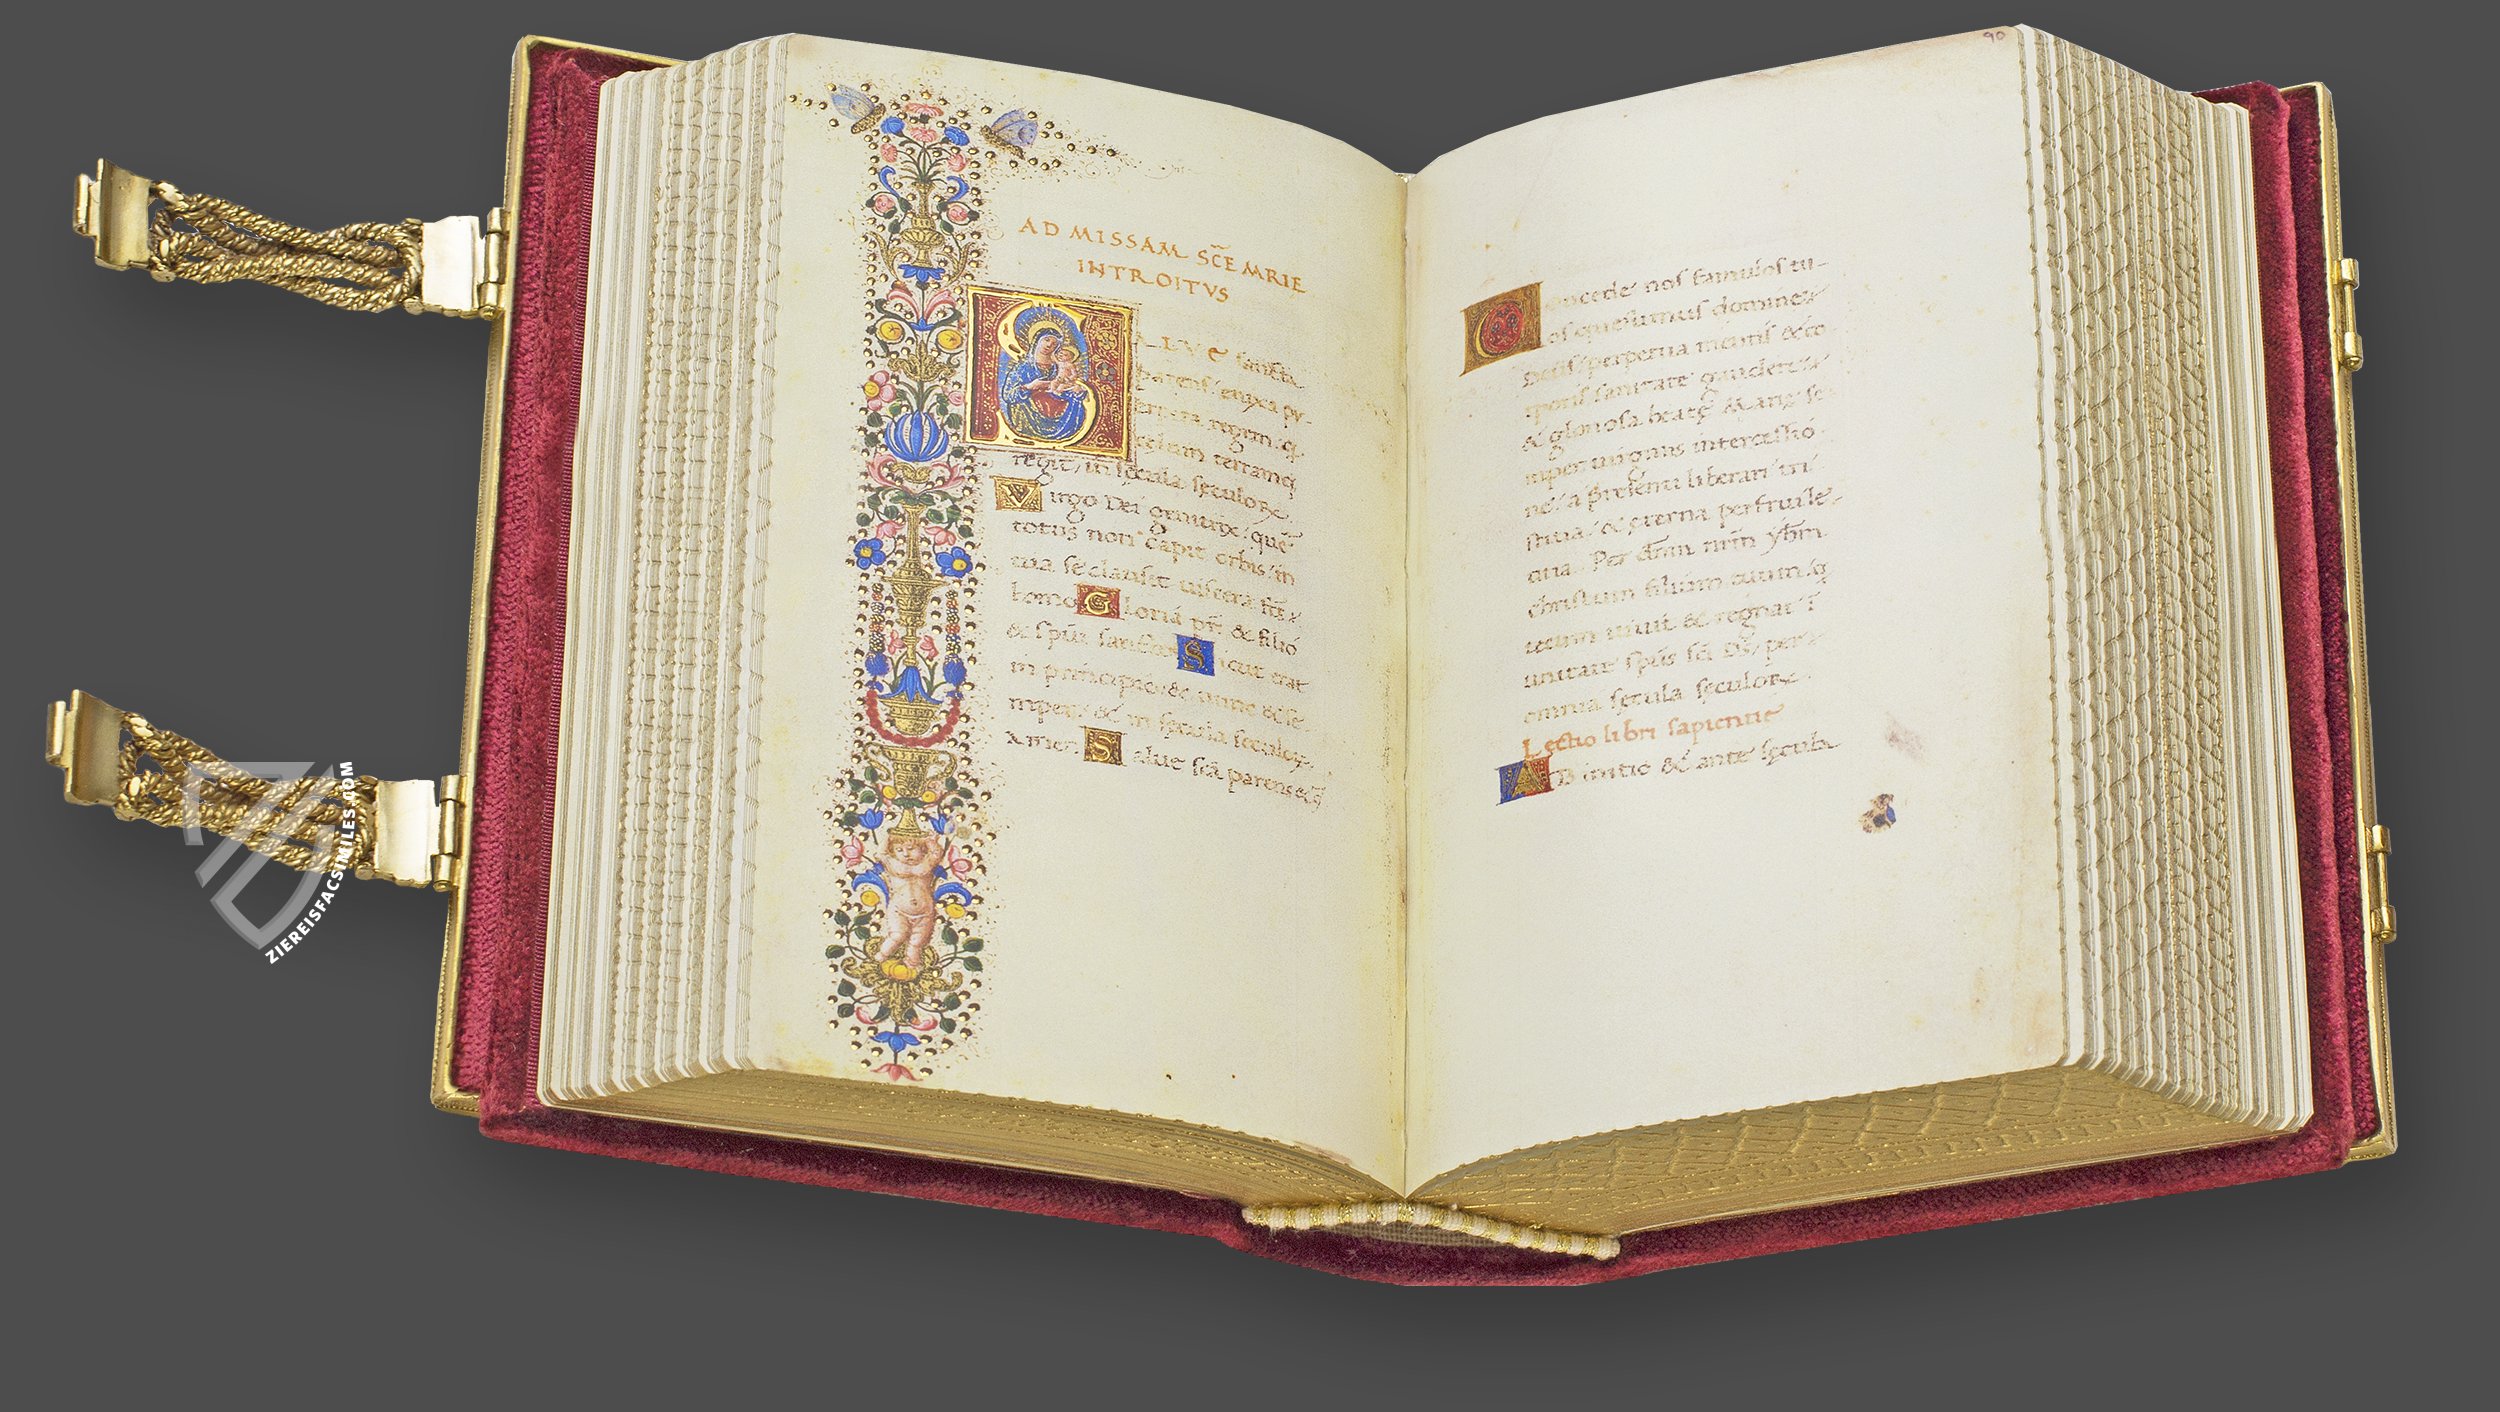 AD MISSAM SCE MRIE
INTROITVS
SALVE sancta
parens enixa pu-
erpera regem, q
celum terramq
regit, in secula seculoꝝ
Virgo Dei genitrix, quē
totus non capit orbis, in
tua se clausit viscera fcs
homo Gloria pri & filio
& spui sancto Sicut erat
in principio, & nunc & se-
mper, & in secula seculoꝝ.
Amen. Salve scā parens
90
Concede nos famulos tu-
os quesumus domine
Deus perpetua mentis & co-
rporis sanitate gaudere,
& gloriosa beate Marie se-
mper uirginis intercessio-
ne, a presenti liberari tri-
stitia, & eterna perfrui le-
titia. Per dnm nrm yhm
christum filium tuum. q
tecum uiuit & regnat ī
unitate spūs sci Ds, per
omnia secula seculoꝝ.
Lectio libri sapientie
AB initio & ante secula
ZIEREISFACSIMILES.COM